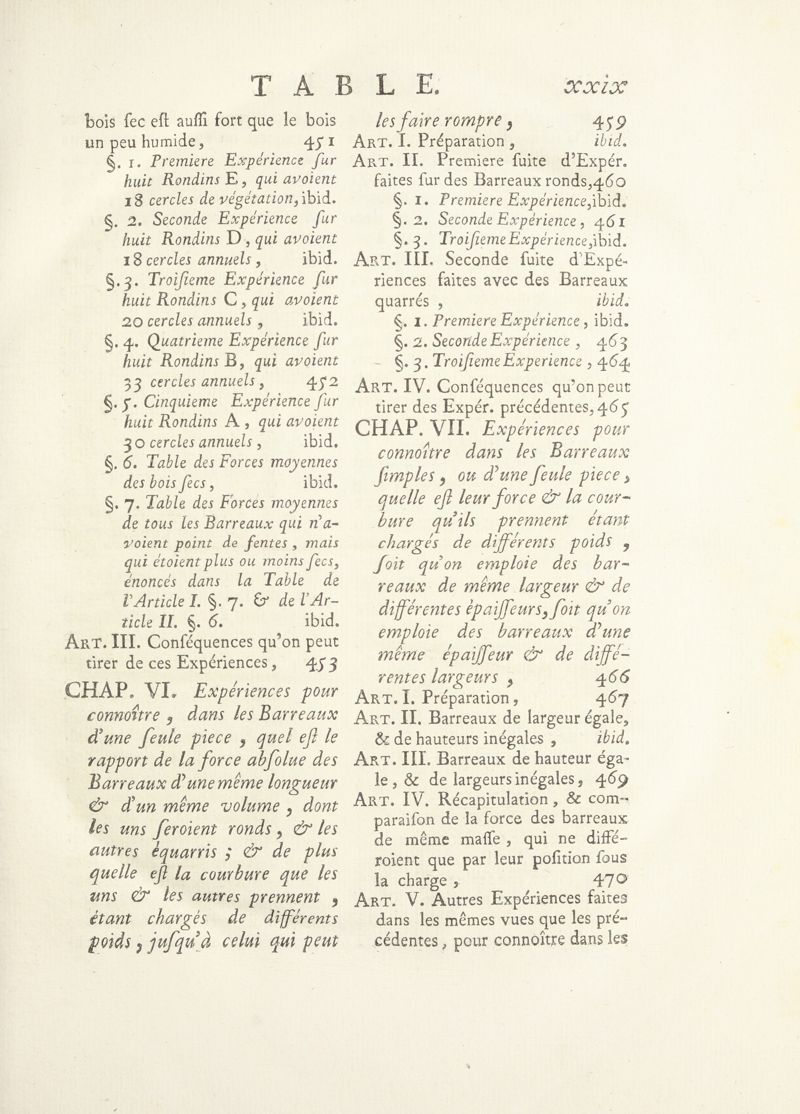 TABLE. xxix
bois ſec eſt auſſi fort que le bois
un peu humide, 451
§. 1. Premiere Expérience ſur
huit Rondins E, qui avoient
18 cercles de végétation, ibid.
§. 2. Seconde Expérience ſur
huit Rondins D, qui avoient
18 cercles annuels, ibid.
§. 3. Troiſieme Expérience ſur
huit Rondins C, qui avoient
20 cercles annuels, ibid.
§. 4. Quatrieme Expérience ſur
huit Rondins B, qui avoient
33 cercles annuels, 452
§. 5. Cinquieme Expérience ſur
huit Rondins A, qui avoient
30 cercles annuels, ibid.
§. 6. Table des Forces moyennes
des bois ſecs, ibid.
§. 7. Table des Forces moyennes
de tous les Barreaux qui n'a-
voient point de fentes, mais
qui étoient plus ou moins ſecs,
énoncés dans la Table de
l'Article I. §. 7. & de l'Ar-
ticle II. §. 6. ibid.
ART. III. Conſéquences qu'on peut
tirer de ces Expériences, 453
CHAP. VI. Expériences pour
connoître, dans les Barreaux
d'une ſeule piece, quel eſt le
rapport de la force abſolue des
Barreaux d'une même longueur
& d'un même volume, dont
les uns ſeroient ronds, & les
autres équarris; & de plus
quelle eſt la courbure que les
uns & les autres prennent,
étant chargés de différents
poids, juſqu'à celui qui peut
les faire rompre, 459
ART. I. Préparation, ibid.
ART. II. Premiere ſuite d'Expér.
faites ſur des Barreaux ronds, 460
§. 1. Premiere Expérience, ibid.
§. 2. Seconde Expérience, 461
§. 3. Troiſieme Expérience, ibid.
ART. III. Seconde ſuite d'Expé-
riences faites avec des Barreaux
quarrés, ibid.
§. 1. Premiere Expérience, ibid.
§. 2. Seconde Expérience, 463
§. 3. Troiſieme Experience, 464
ART. IV. Conſéquences qu'on peut
tirer des Expér. précédentes, 465
CHAP. VII. Expériences pour
connoître dans les Barreaux
ſimples, ou d'une ſeule piece,
quelle eſt leur force & la cour-
bure qu'ils prennent étant
chargés de différents poids,
ſoit qu'on emploie des bar-
reaux de même largeur & de
différentes épaiſſeurs, ſoit qu'on
emploie des barreaux d'une
même épaiſſeur & de diffé-
rentes largeurs, 466
ART. I. Préparation, 467
ART. II. Barreaux de largeur égale,
& de hauteurs inégales, ibid.
ART. III. Barreaux de hauteur éga-
le, & de largeurs inégales, 469
ART. IV. Récapitulation, & com-
paraiſon de la force des barreaux
de même maſſe, qui ne diffé-
roient que par leur poſition ſous
la charge, 470
ART. V. Autres Expériences faites
dans les mêmes vues que les pré-
cédentes, pour connoître dans les